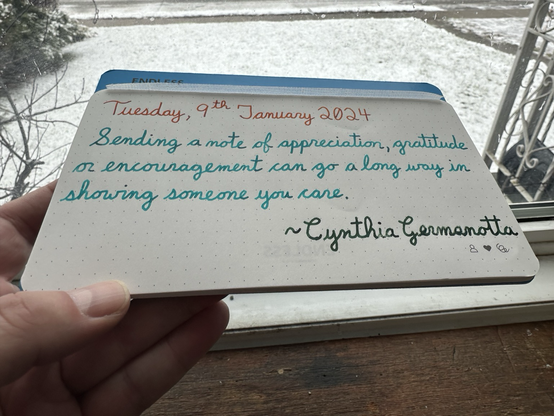 ENDLESS
Tuesday, 9th January 2024
Sending a note of appreciation, gratitude
or encouragement can go a long way in
showing someone you care.
~Cynthia Germanotta